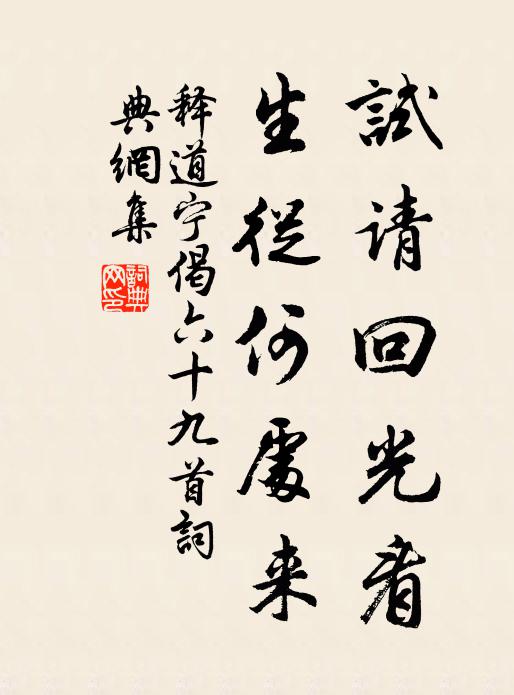 試请回光看
生從何處来
释道宁偈六十九首詞
典網集
詞典
网印